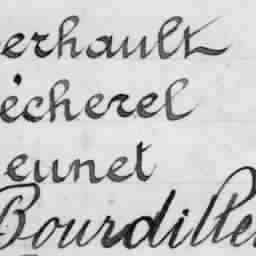 erhault
écherel
eunet
Bourdille